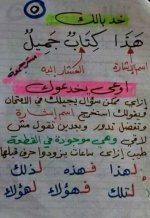 خد بالك
هَذَا كِتَابٌ جَمِيلٌ
اسم إشارة
المشار إليه
أوعى يخدعوك
إزاي ممكن سؤال يجيلك في الامتحان
فيقولك استخرج اسم إشارة
وتفضل تدور وبعدين تقول مش
لاقي وهي موجودة في القطعة
طيب إزاي ساعات بيزودوا حرف قبلها
لهذا فهذه لذلك
لتلك فهؤلاء لهؤلاء